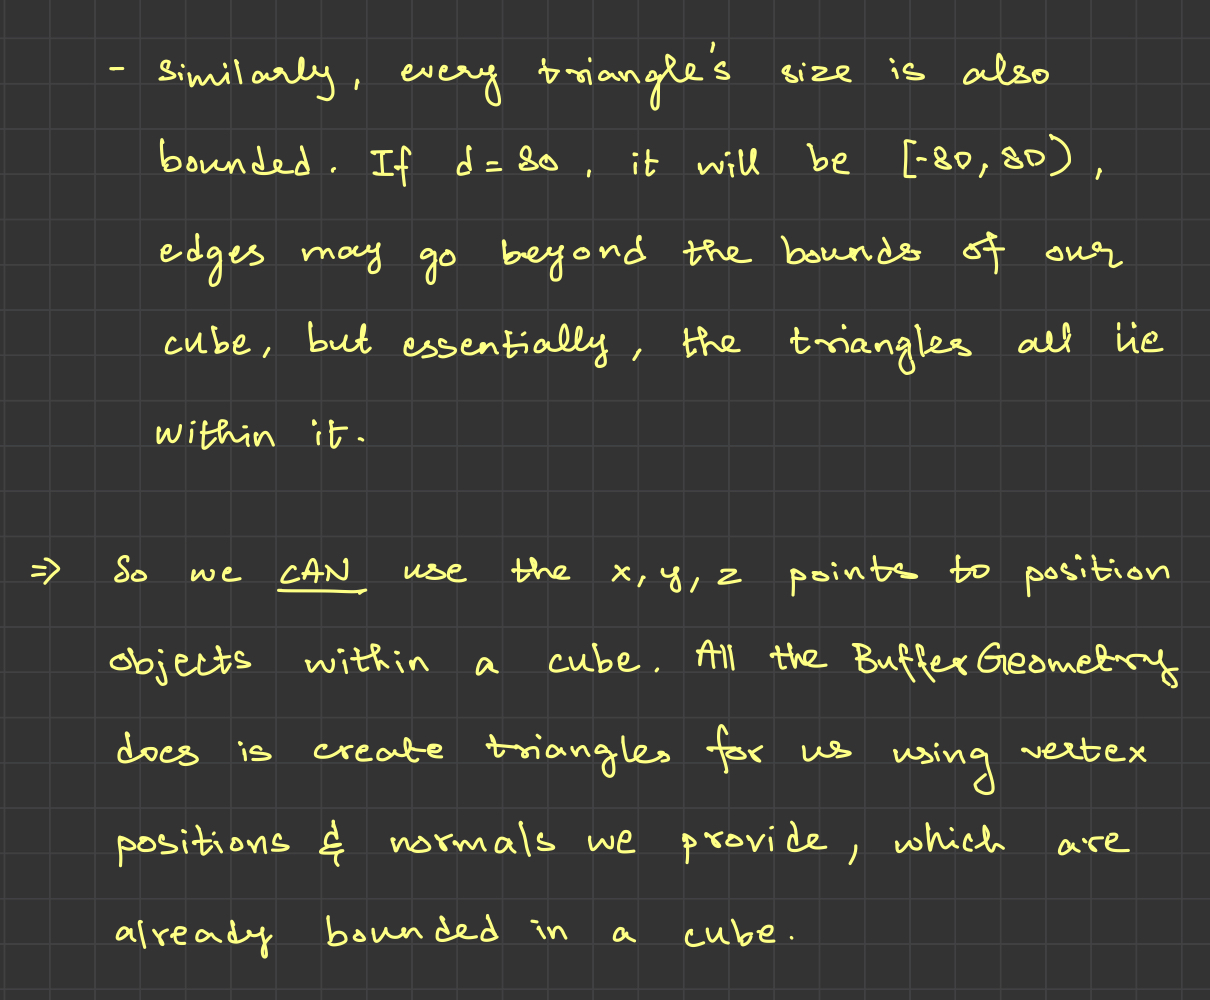 - Similarly, every triangle's size is also
bounded. If d = 80, it will be [-80, 80),
edges may go beyond the bounds of our
cube, but essentially, the triangles all lie
within it.
⇒ So we CAN use the x, y, z points to position
objects within a cube. All the BufferGeometry
does is create triangles for us using vertex
positions & normals we provide, which are
already bounded in a cube.